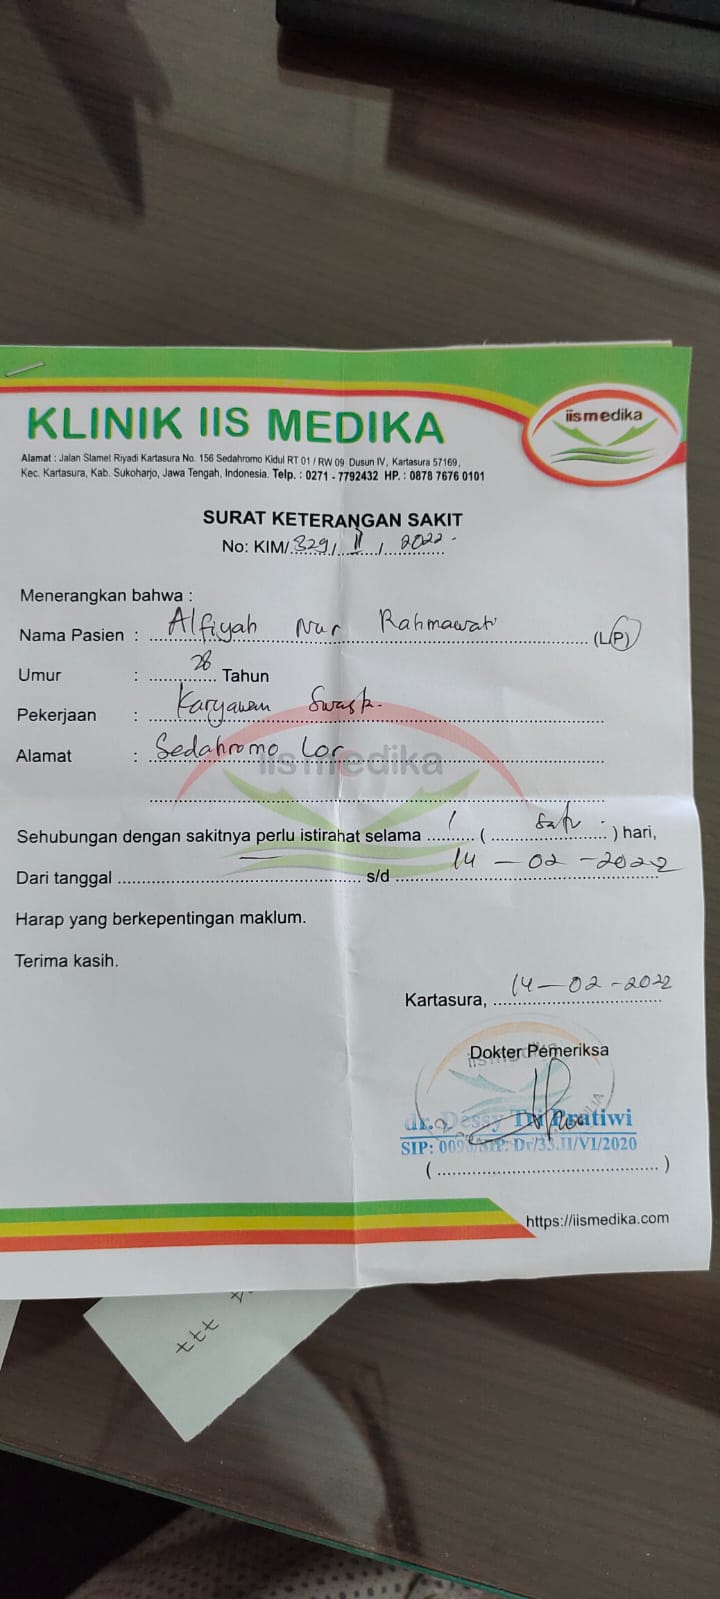 KLINIK IIS MEDIKA
iismedika
Alamat : Jalan Slamet Riyadi Kartasura No. 156 Sedahromo Kidul RT 01 / RW 09 Dusun IV, Kartasura 57169,
Kec. Kartasura, Kab. Sukoharjo, Jawa Tengah, Indonesia. Telp. : 0271 - 7792432 HP. : 0878 7676 0101
SURAT KETERANGAN SAKIT
No: KIM/.329/ II / 2022.
Menerangkan bahwa :
Nama Pasien : Alfiyah Nur Rahmawati (L/P)
Umur : 28 Tahun
Pekerjaan : Karyawan
Alamat : Sedahromo Lor
iismedika
Sehubungan dengan sakitnya perlu istirahat selama 1 ( satu ) hari,
Dari tanggal s/d 14 - 02 - 2022
Harap yang berkepentingan maklum.
Terima kasih.
Kartasura, 14 - 02 - 2022
Dokter Pemeriksa
dr. Dessy Tri Pratiwi
SIP: Dr/33.JI/VI/2020
( )
https://iismedika.com
ttt